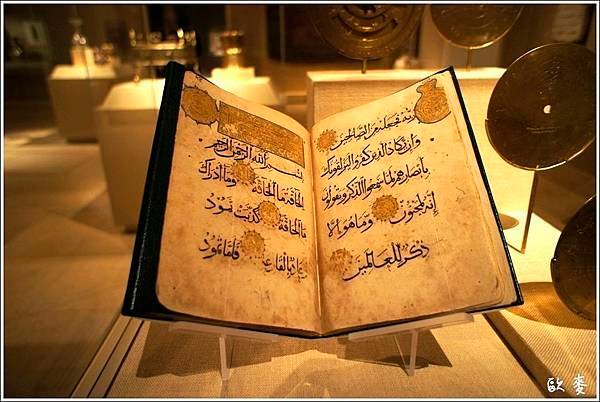 ربه فجعله من الصالحين
وان يكاد الذين كفروا ليزلقونك
بأبصارهم لما سمعوا الذكر ويقولون
إنه لمجنون وما هو إلا
ذكر للعالمين
بسم الله الرحمن الرحيم
الحاقة ما الحاقة وما أدراك
ما الحاقة كذبت ثمود
وعاد بالقارعة فأما ثمود
歐麥